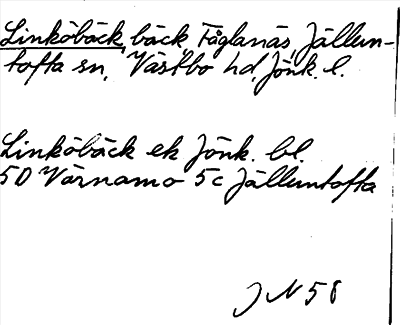 Linkåbäck, bäck, Fåglanäs, Jällun-
tofta sn, Västbo hd, Jönk. l.
Linkåbäck ek Jönk. bl.
5D Värnamo 5c Jälluntofta
J N 58